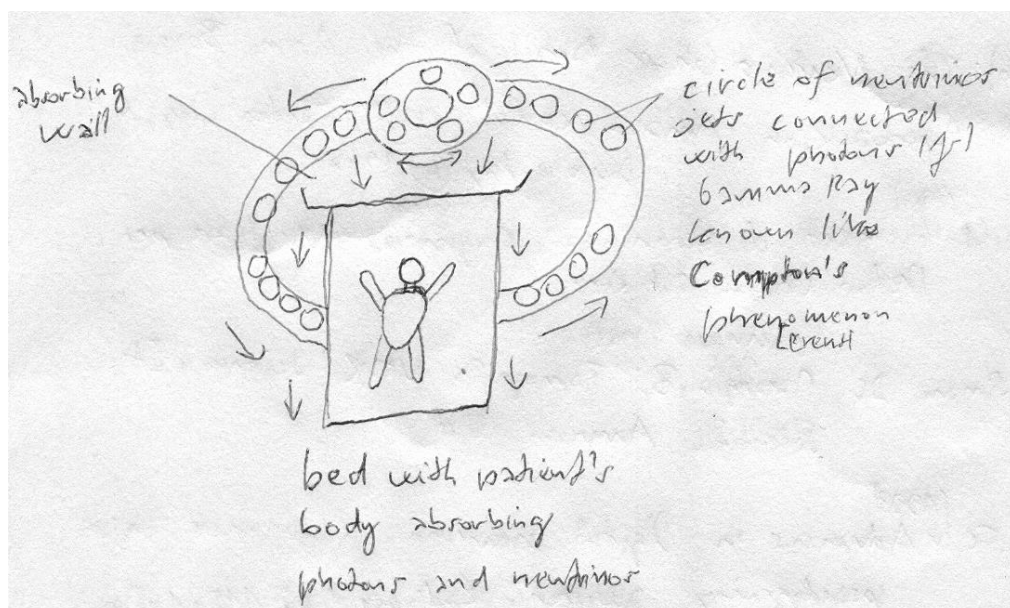 absorbing
wall
circle of neutrinos
jets connected
with photons
Gamma Ray
known like
Compton's
phenomenon
bed with patient's
body absorbing
photons and neutrinos